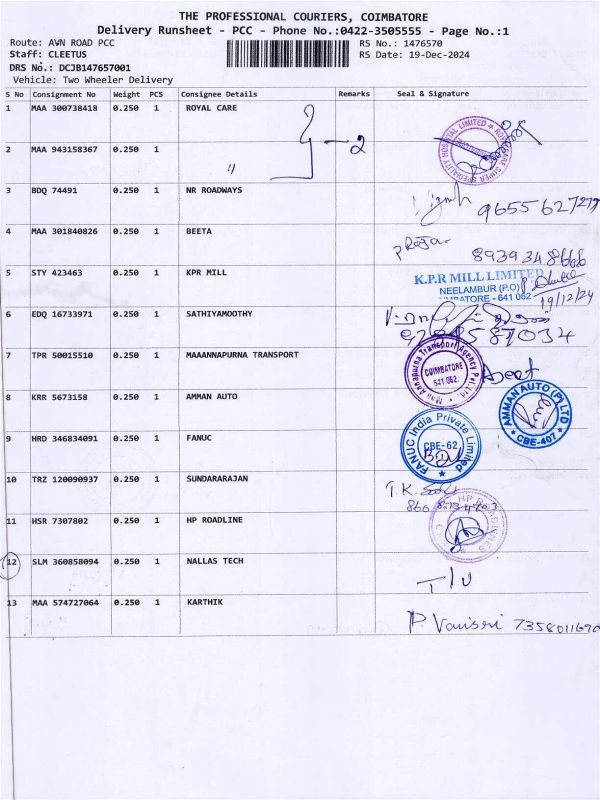 THE PROFESSIONAL COURIERS, COIMBATORE
Delivery Runsheet - PCC - Phone No.:0422-3505555 - Page No.:1
Route: AWN ROAD PCC
RS No.: 1476570
Staff: CLEETUS
RS Date: 19-Dec-2024
DRS No.: DCJB147657001
Vehicle: Two Wheeler Delivery
S No Consignment No Weight PCS Consignee Details Remarks Seal & Signature
1 MAA 300738418 0.250 1 ROYAL CARE
2
2 MAA 943158367 0.250 1 "
3 BDQ 74491 0.250 1 NR ROADWAYS
4 MAA 301840826 0.250 1 BEETA
P Raja
5 STY 423463 0.250 1 KPR MILL
K.P.R MILL LIMITED
NEELAMBUR (P.O)
COIMBATORE - 641 062
19/12/24
6 EDQ 16733971 0.250 1 SATHIYAMOOTHY
7 TPR 50015510 0.250 1 MAAANNAPURNA TRANSPORT
Maa Annapurna Transport Agency Pvt. Ltd.
COIMBATORE
641 062.
8 KRR 5673158 0.250 1 AMMAN AUTO
AMMAN AUTO (P) LTD
CBE-407
9 HRD 346834091 0.250 1 FANUC
FANUC India Private Limited
CBE-62
10 TRZ 120090937 0.250 1 SUNDARARAJAN
T.K.
11 HSR 7307802 0.250 1 HP ROADLINE
12 SLM 360858094 0.250 1 NALLAS TECH
13 MAA 574727064 0.250 1 KARTHIK
P. Vanisri 7358011690